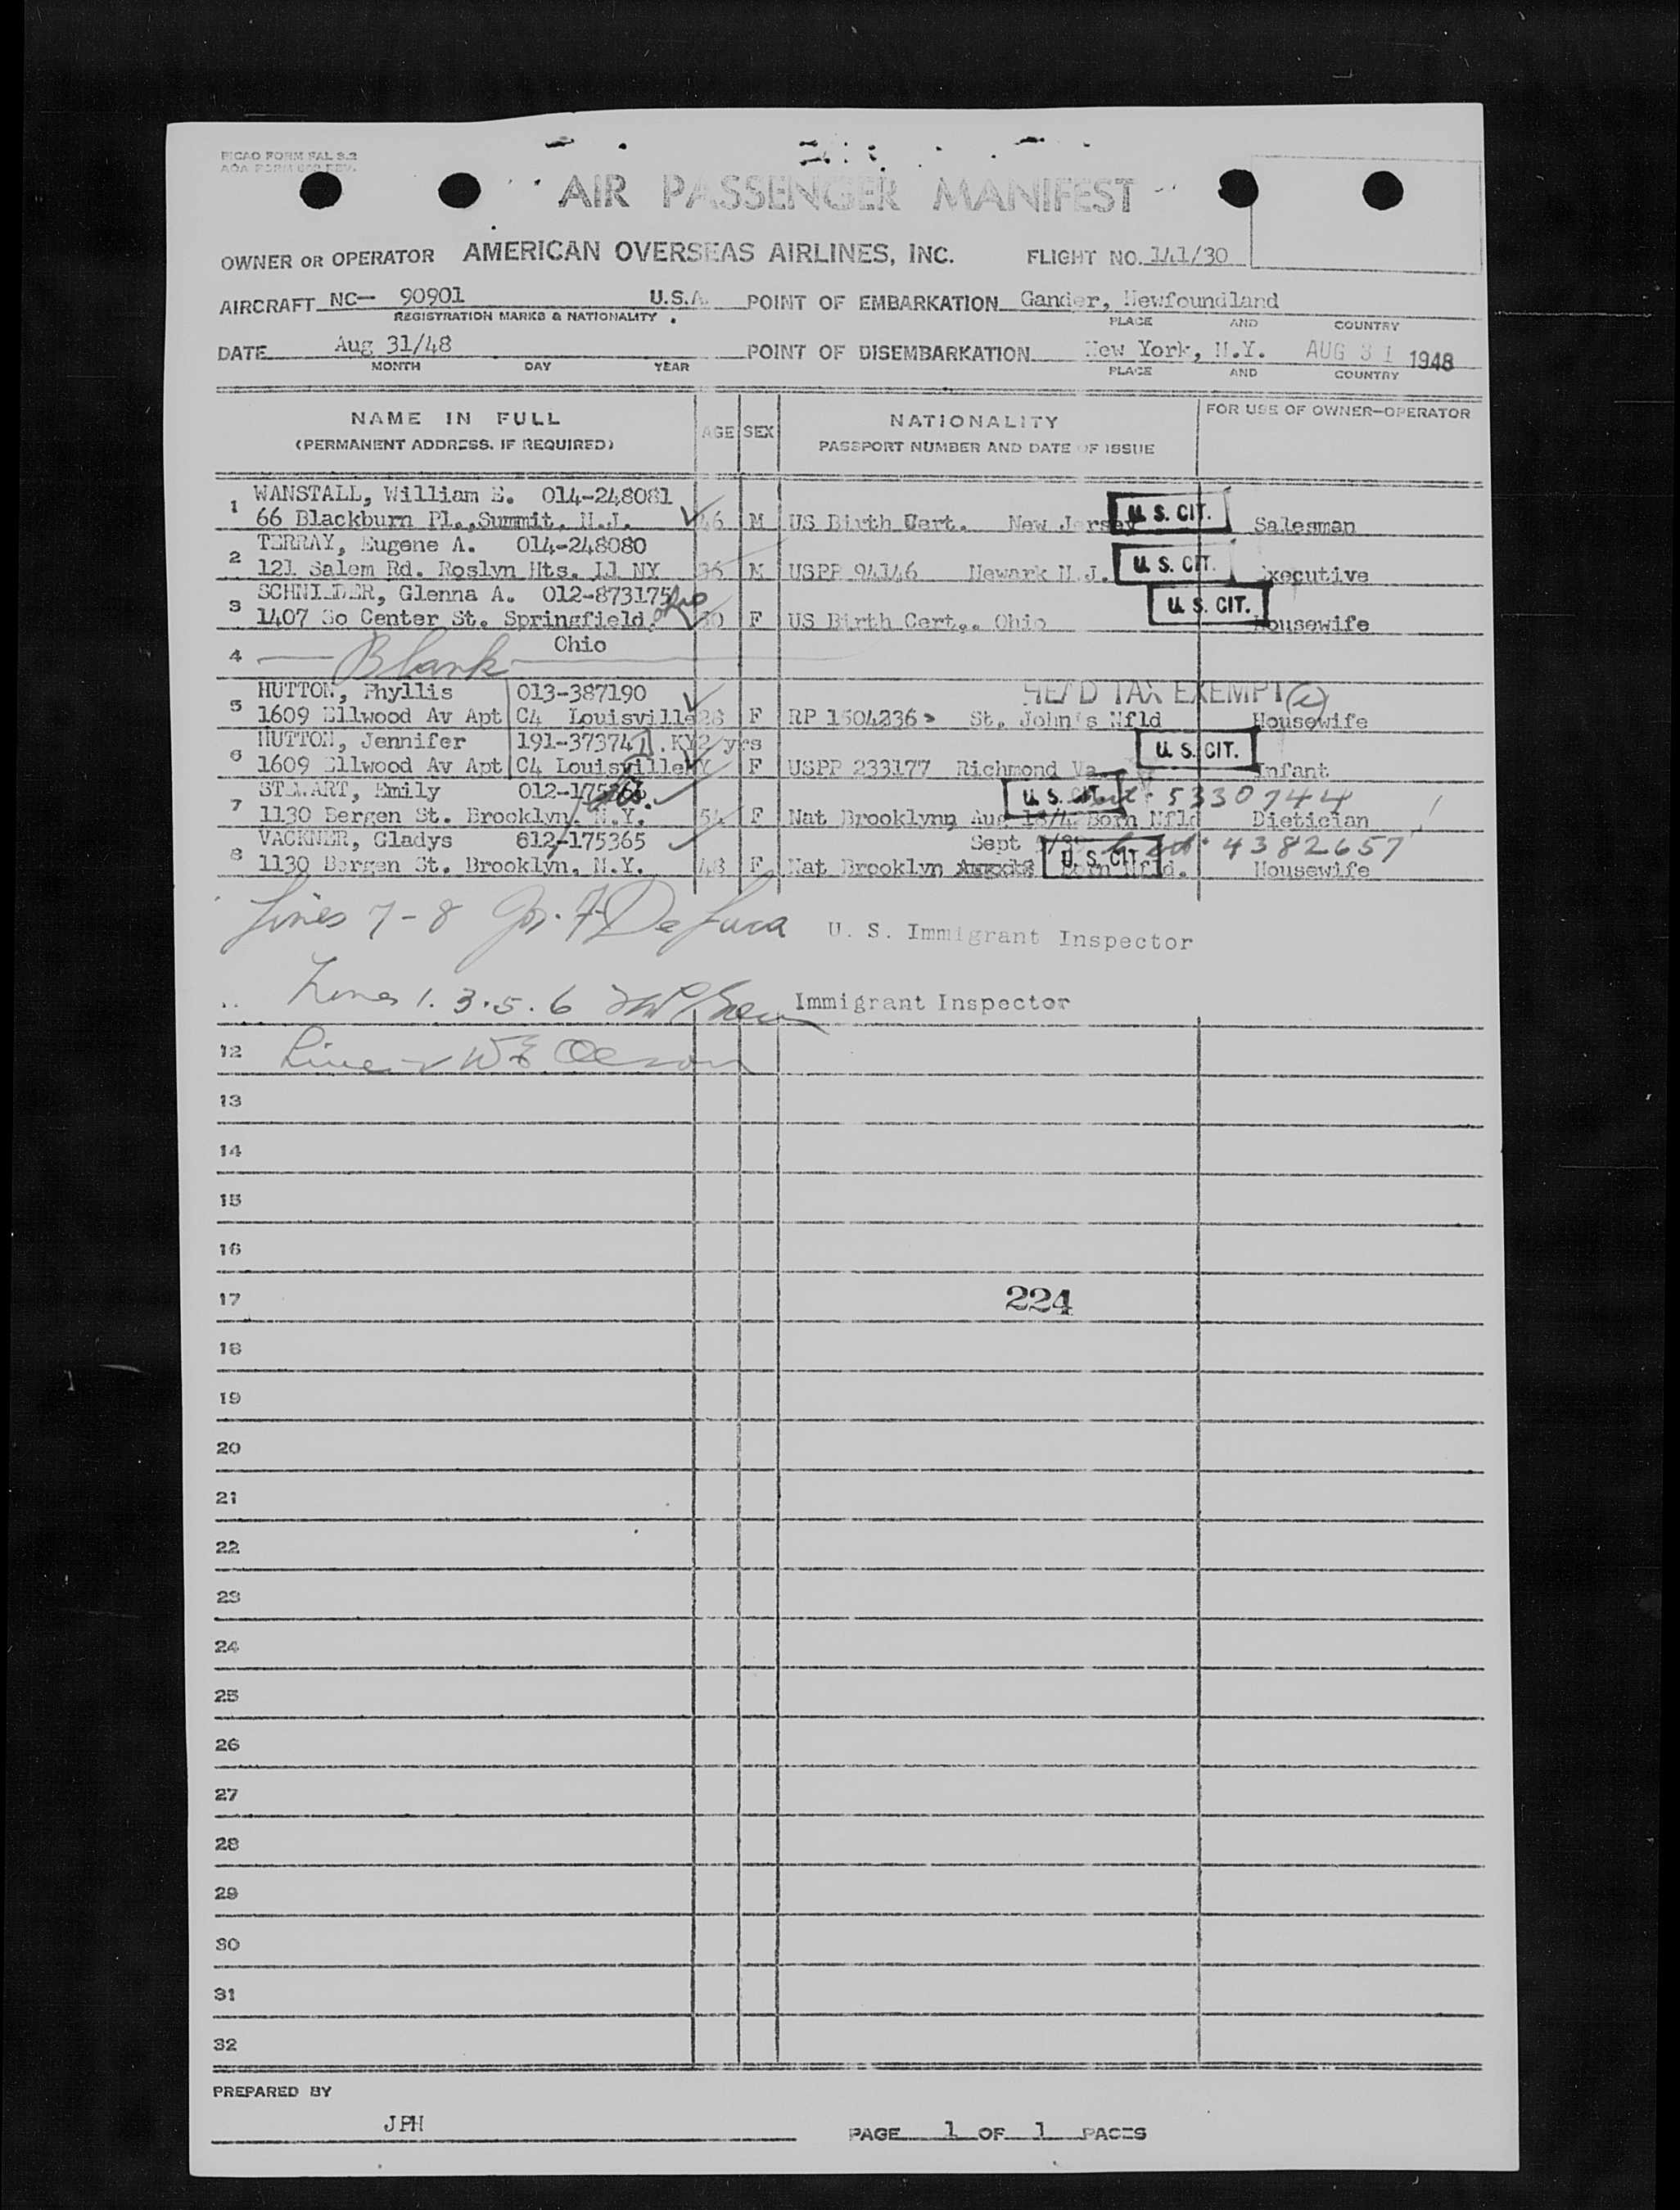 PICAO FORM FAL 9.2
AIR PASSENGER MANIFEST
OWNER OR OPERATOR AMERICAN OVERSEAS AIRLINES, INC. FLIGHT NO. 141/30
AIRCRAFT NC— 90901 U.S.A. POINT OF EMBARKATION Gander, Newfoundland
REGISTRATION MARKS & NATIONALITY PLACE AND COUNTRY
DATE Aug 31/48 POINT OF DISEMBARKATION New York, N.Y. AUG 31 1948
MONTH DAY YEAR PLACE AND COUNTRY
NAME IN FULL AGE SEX NATIONALITY FOR USE OF OWNER-OPERATOR
(PERMANENT ADDRESS, IF REQUIRED) PASSPORT NUMBER AND DATE OF ISSUE
1 WANSTALL, William E. 014-248081
66 Blackburn Pl., Summit, N.J. 46 M US Birth Cert. New Jersey U. S. CIT. Salesman
2 TERRAY, Eugene A. 014-248080
121 Salem Rd. Roslyn Hts. LI NY 36 M USPP 94146 Newark N.J. U. S. CIT. Executive
3 SCHNEIDER, Glenna A. 012-873175
1407 So Center St. Springfield, F US Birth Cert.. Ohio U. S. CIT. Housewife
Ohio
4 Blank
5 HUTTON, Phyllis 013-387190 HEAD TAX EXEMPT
1609 Ellwood Av Apt C4 Louisville 28 F RP 1504236 St. John's Nfld Housewife
6 HUTTON, Jennifer 191-373741 . KY 2 yrs
1609 Ellwood Av Apt C4 Louisville KY F USPP 233177 Richmond Va. U. S. CIT. Infant
7 STEWART, Emily 012-175366 U. S. CIT. 5330744
1130 Bergen St. Brooklyn, N.Y. 54 F Nat Brooklynn Aug Born Nfld Dietician
8 VACKNER, Gladys 612-175365 Sept U. S. CIT. 4382657
1130 Bergen St. Brooklyn, N.Y. 48 F Nat Brooklyn Born Nfld. Housewife
Lines 7-8 Jos. F. DeLuca U. S. Immigrant Inspector
Lines 1. 3. 5. 6 Immigrant Inspector
12 Line 2 W E Olsson
13
14
15
16
17 224
18
19
20
21
22
23
24
25
26
27
28
29
30
31
32
PREPARED BY
JPH
PAGE 1 OF 1 PAGES